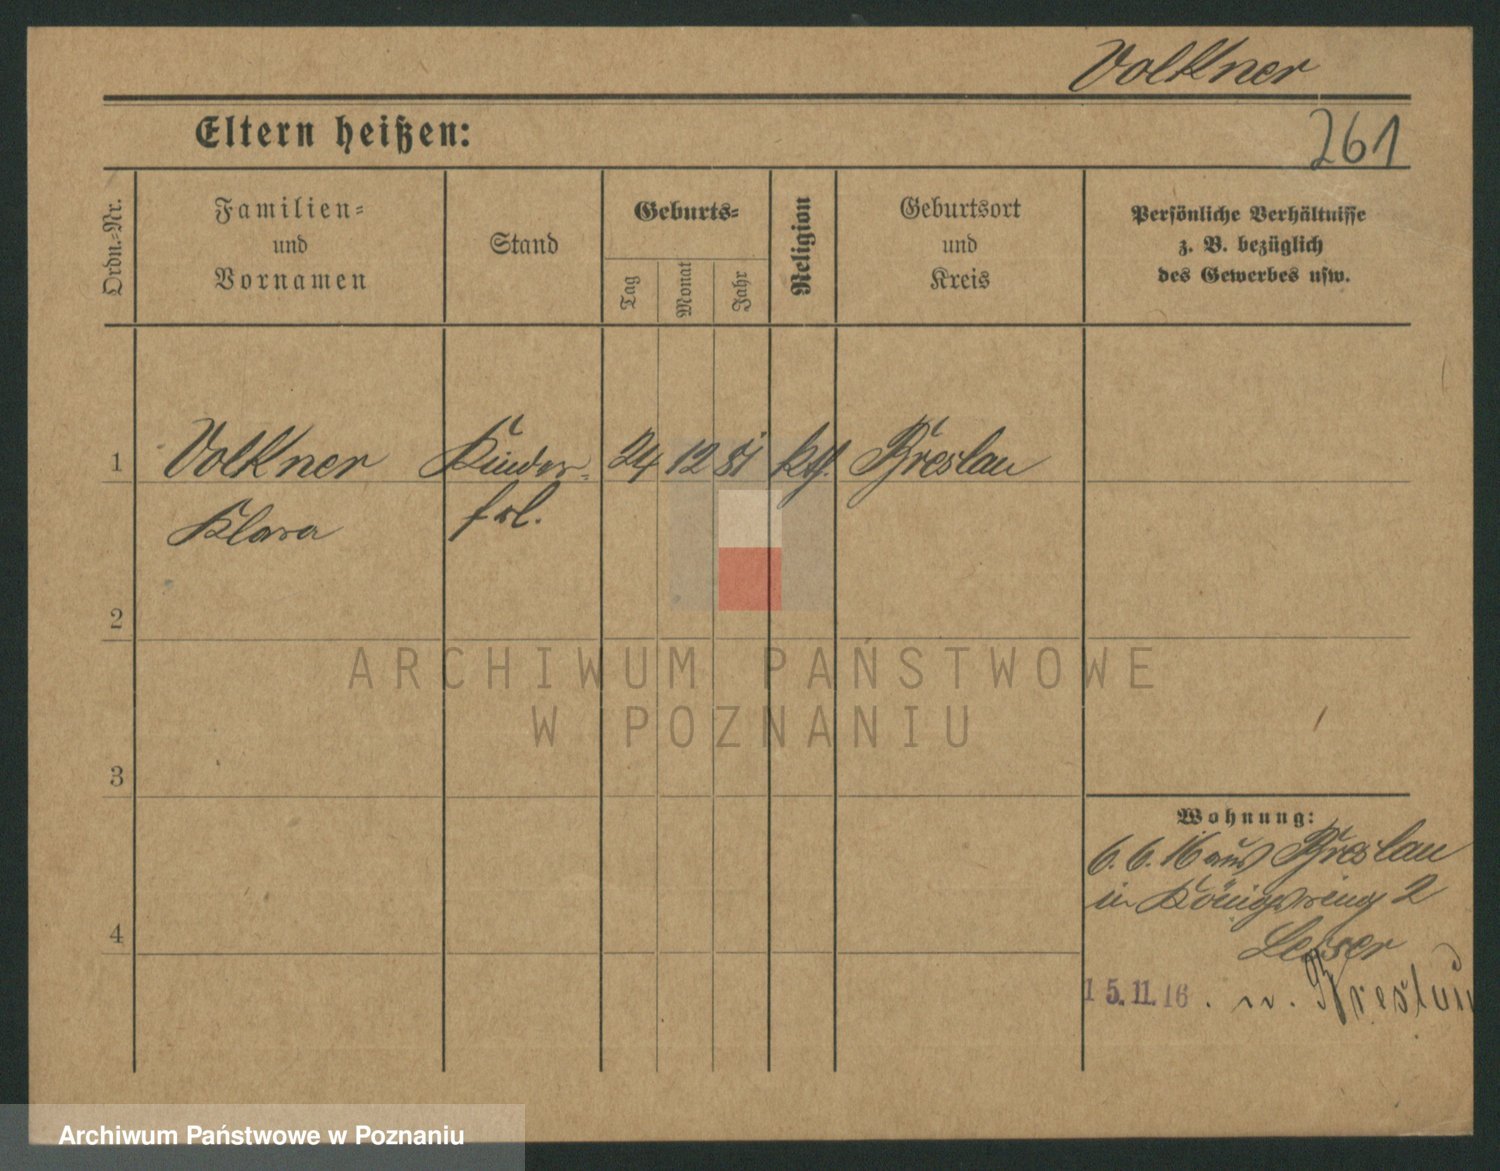 Volkner
Eltern heißen:
261
Ordn.-Nr.
Familien-
und
Vornamen
Stand
Geburts-
Tag
Monat
Jahr
Religion
Geburtsort
und
Kreis
Persönliche Verhältnisse
z. B. bezüglich
des Gewerbes usw.
1 Volkner Kinder- 24 12 81 kth. Breslau
Klara frl.
2
ARCHIWUM PAŃSTWOWE
W POZNANIU
3
Wohnung:
6.6.16 aus Breslau
in Königsring 2
4
Leiser
15.11.16. n. Breslau
Archiwum Państwowe w Poznaniu